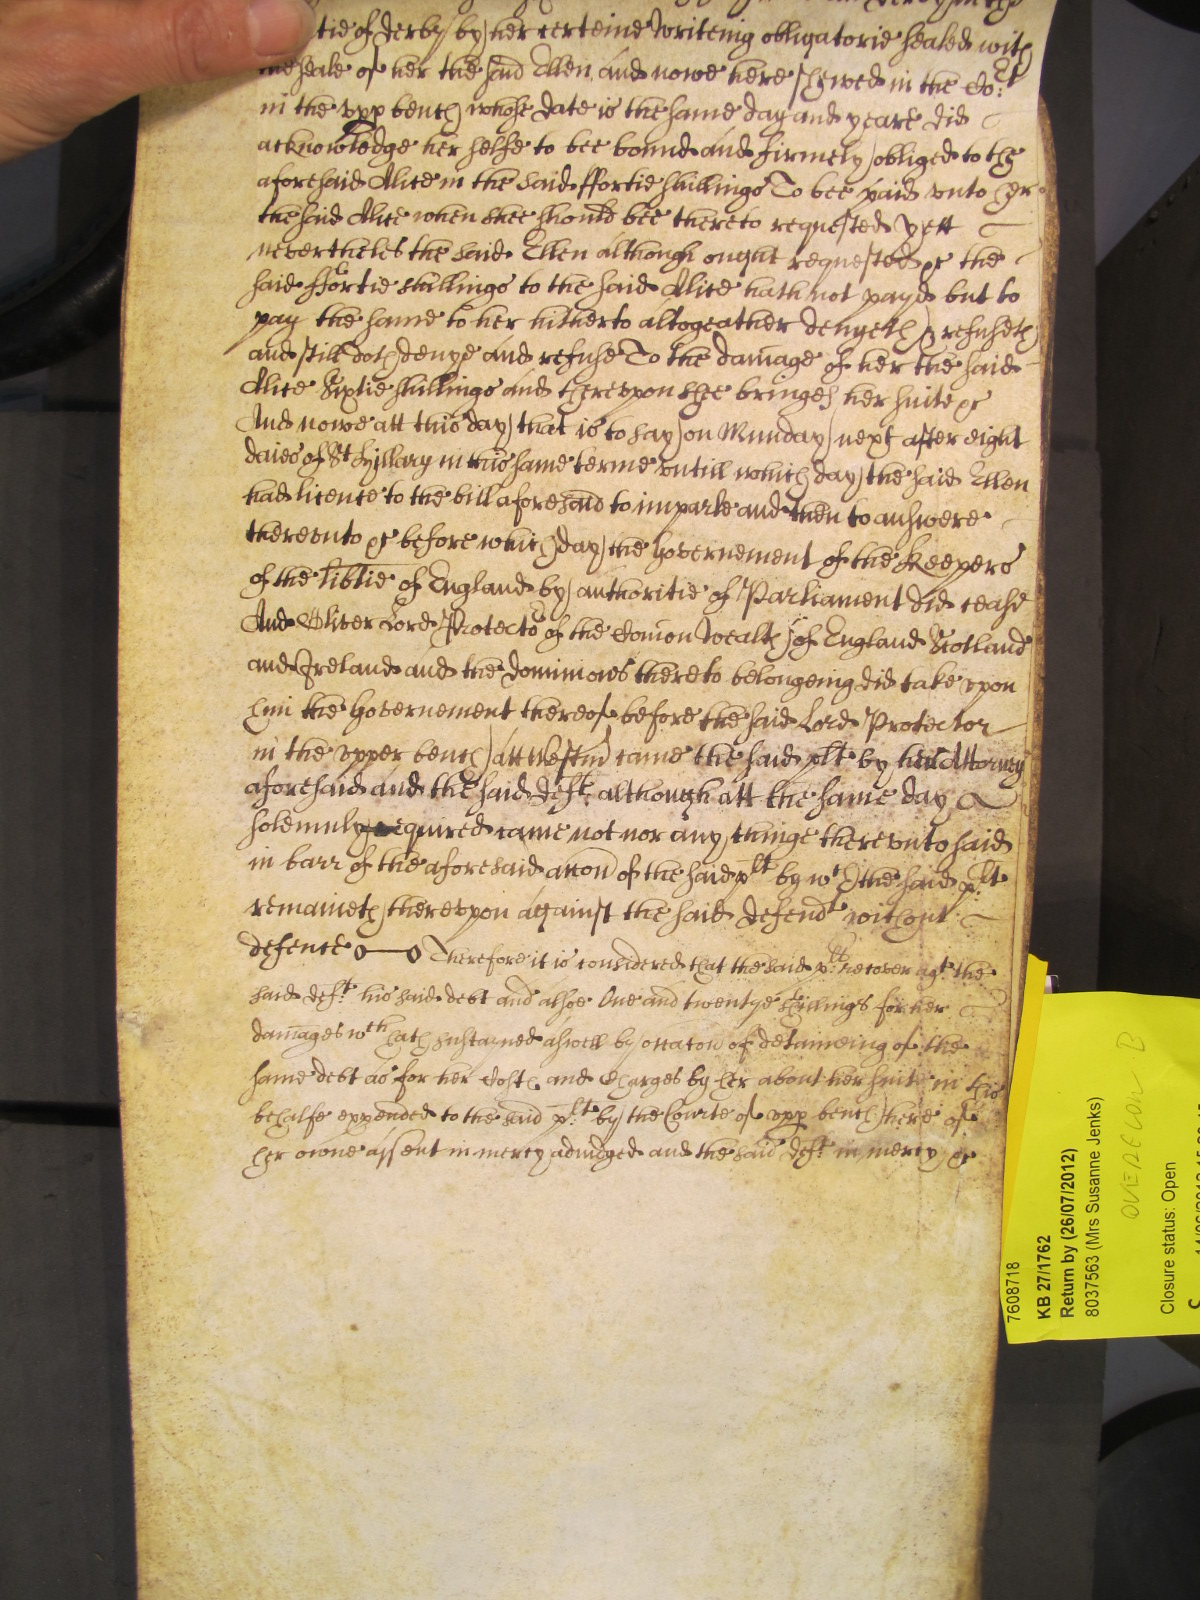 tie of derby by her certeine Writeing obligatorie sealed with
the seale of her the said Ellen and nowe here shewed in the Co:rt
in the vpp bench whose date is the same day and yeare did
acknowledge her selfe to bee bound and firmely obliged to the
aforesaid Alice in the said ffortie shillings To bee paid vnto her
the said Alice when shee should bee thereto requested yett
neverthelesthe said Ellen although ought requested &c the
said ffortie shillings to the said Alice hath not payd but to
pay the same to her hitherto altogeather denyeth & refuseth
and still doth denye and refuse To the damage of her the said
Alice Sixtie shillings and therevpon shee bringeth her suite &c
And nowe att this day that is to say on Munday next after eight
daies of St Hillary in this same terme vntill which day the said Ellen
had licence to the bill aforesaid to imparle and then to answere
therevnto &c before which day the Governement of the Keepers
of the libtie of England by authoritie of Parliament did cease
And Oliver Lord Protector of the Comon Wealth of England Scotland
and Ireland and the dominions thereto belongeing did take vpon
him the Governement thereof before the said Lord Protector
in the vpper bench att Westmr came the said plt by her Attorney
aforesaid and the said Deft although att the same day
solemnly required came not nor any thinge therevnto said
in barr of the aforesaid accon of the said plt by wch the said plt
remaineth therevpon against the said defendt without
defence Therefore it is considered that the said plt recover agt the
said deft his said debt and alsoe One and twentye shillings for her
damages wch hath sustayned aswell by occacon of detaineing of the
same debt as for her Costs and Charges by her about her suite in this
behalfe expended to the said plt by the Courte of vpp bench here of
her owne assent in mercy adiudged and the said deft in mercy &c
7608718
KB 27/1762
Return by (26/07/2012)
8037563 (Mrs Susanne Jenks)
OVERFLOW B
Closure status: Open